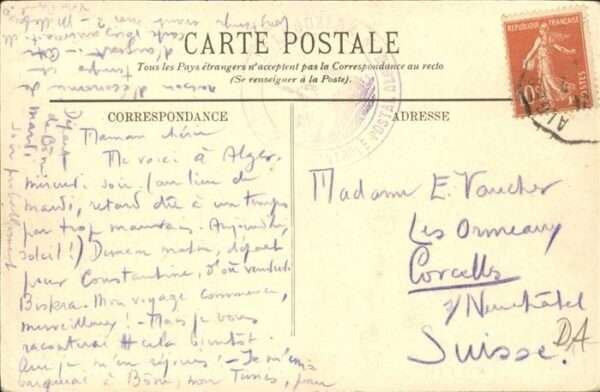 CARTE POSTALE
Tous les Pays étrangers n'acceptent pas la Correspondance au recto
(Se renseigner à la Poste).
CORRESPONDANCE
ADRESSE
RÉPUBLIQUE FRANÇAISE
10
Maman chérie
Me voici à Alger,
mercredi soir (au lieu de
mardi, retard dû à un temps
par trop mauvais. Aujourd'hui,
soleil !) Demain matin, départ
pour Constantine, d'où vendredi
Biskra. Mon voyage commence,
merveilleux ! - Mais je vous
raconterai cela bientôt.
Que je m'en réjouis ! - Je m'em
barquerai à Bône, pour
Départ
de Bône
mardi
soir probablement
raison d'économie de
temps et
d'argent.
Madame E. Vaucher
Les Ormeaux
Corcelles
s/Neuchâtel
Suisse.
DA